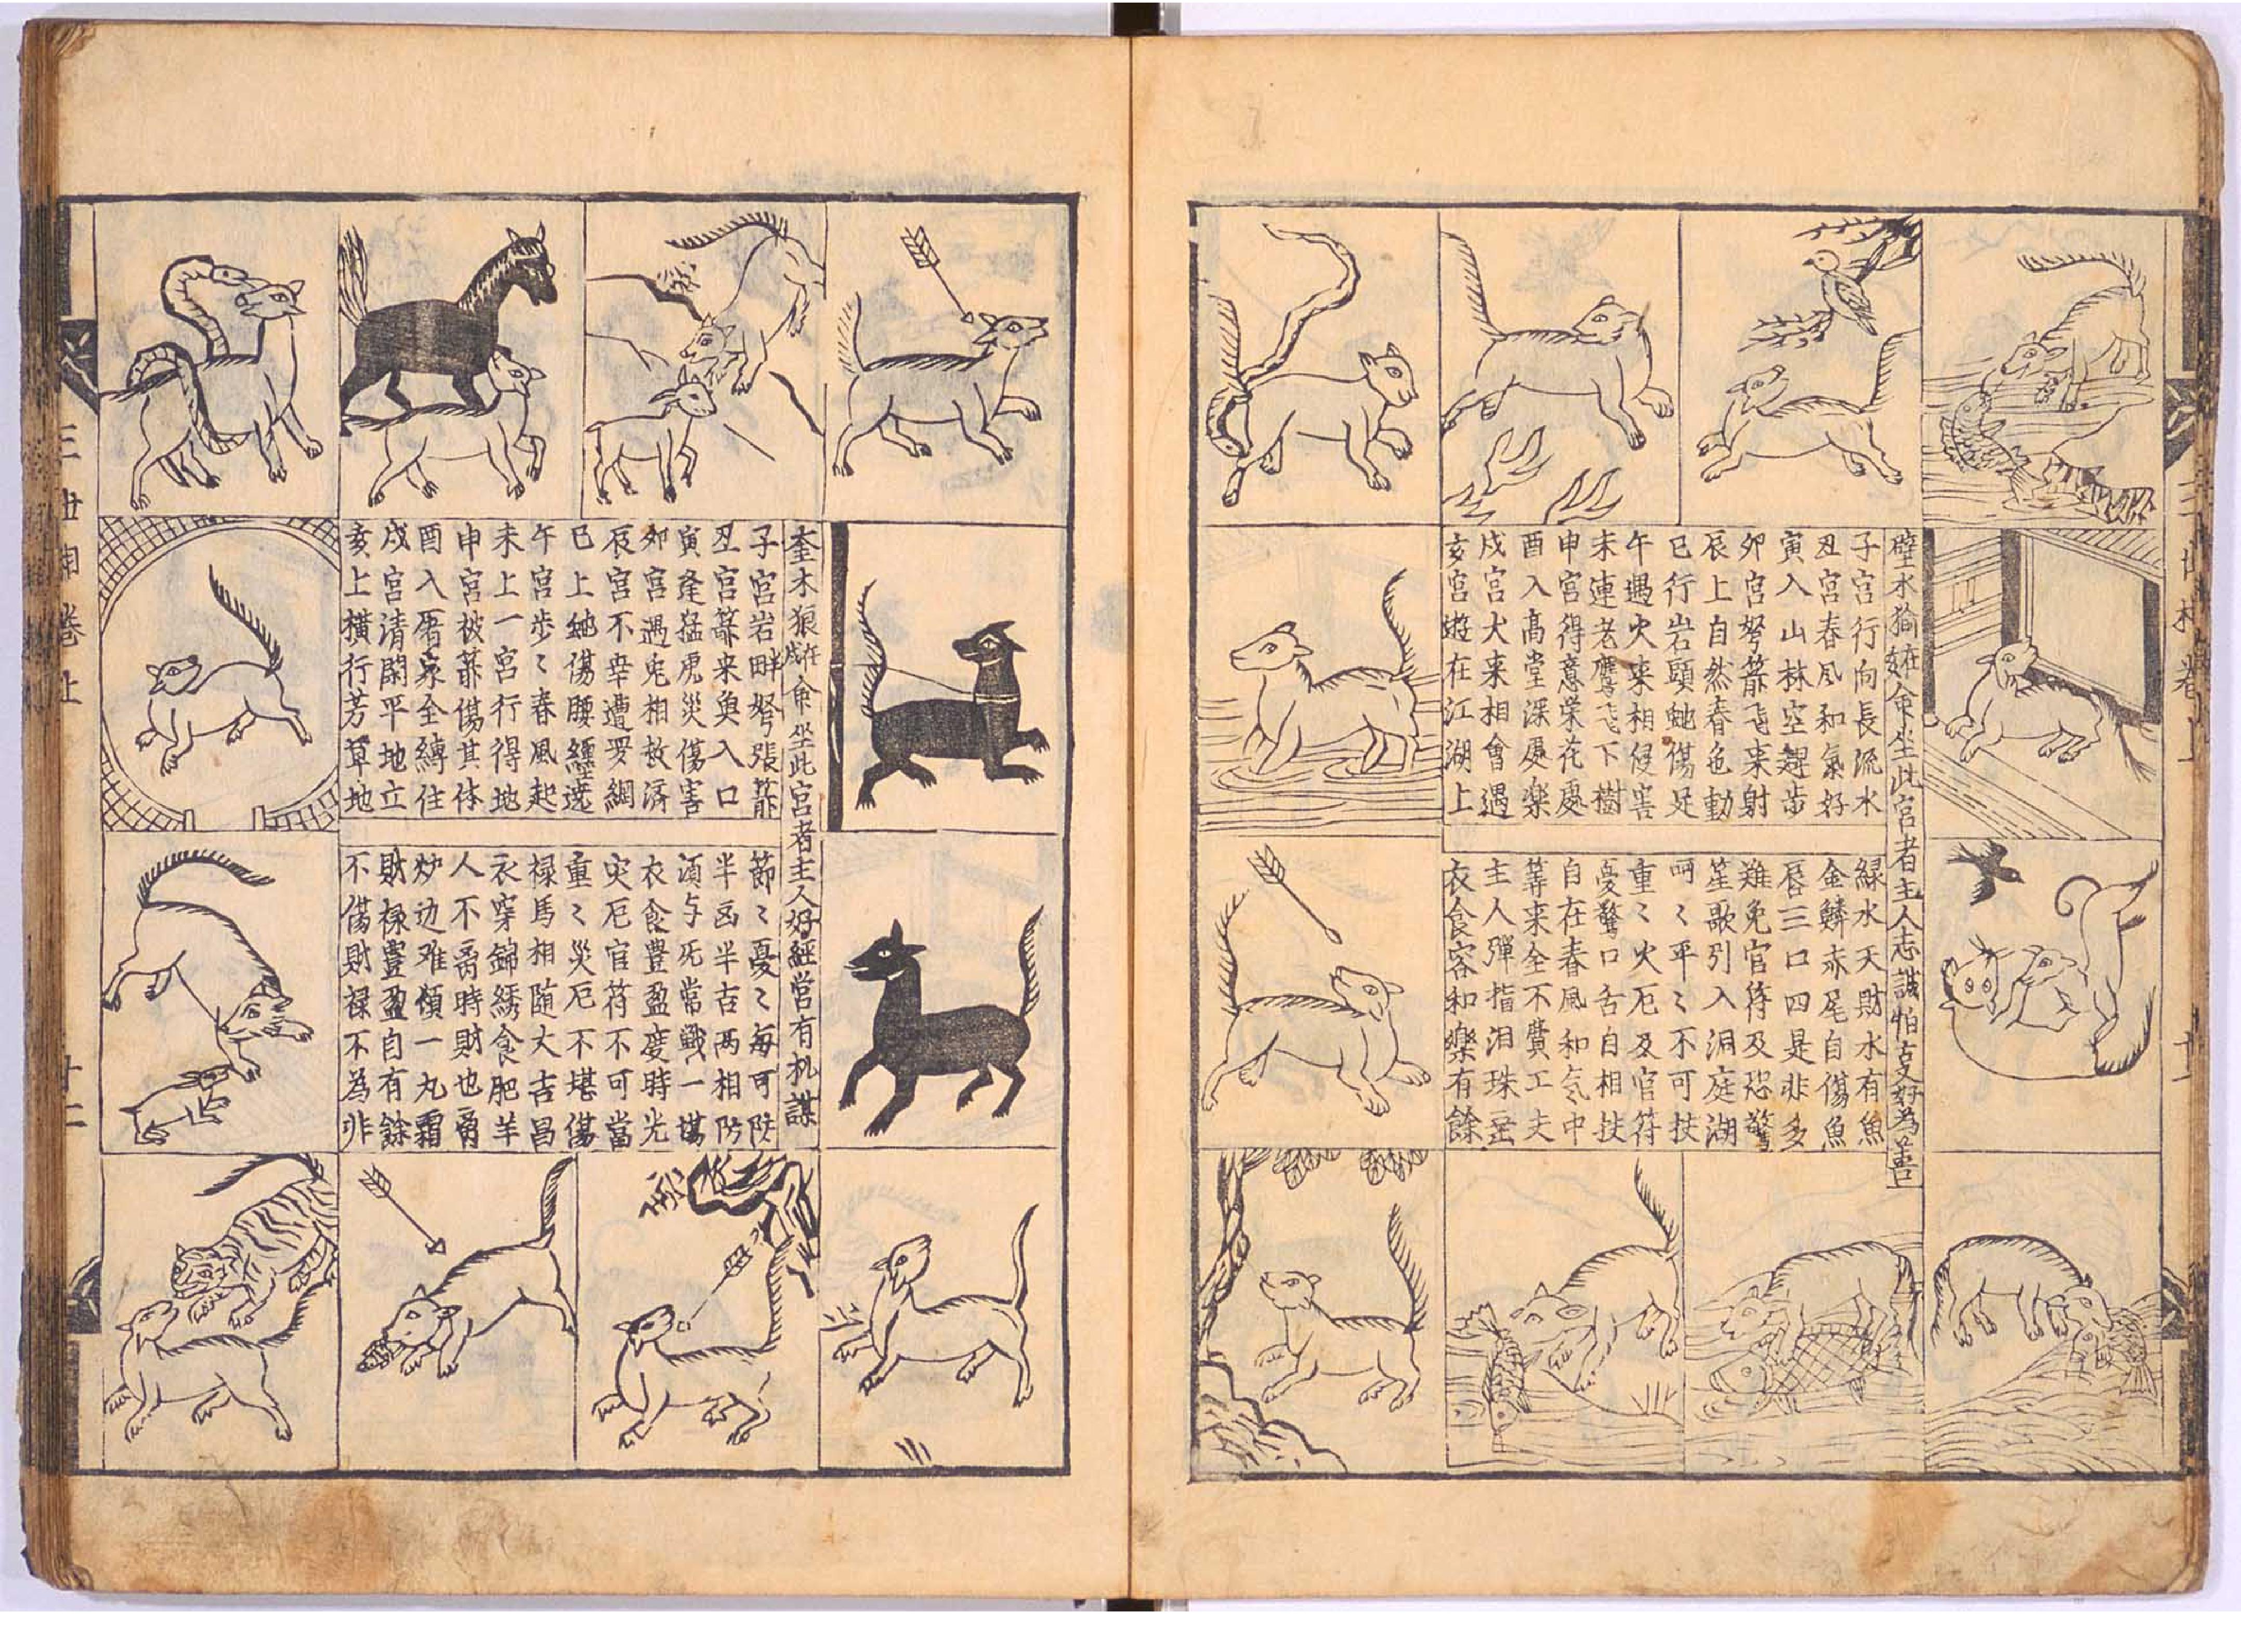 壁水㺄在亥命坐此宮者主人志誠怕妻好為善
子宮行向長流水
丑宮春風和氣好
寅入山林空趕步
夘宮弩箭飞来射
辰上自然春色動
巳行岩頭虵傷足
午遇火来相侵害
未連老鷹飞下樹
申宮得意榮花處
酉入高堂深處樂
戌宮犬来相會遇
亥宮遊在江湖上
緑水天財水有魚
金鱗赤尾自傷魚
唇三口四是非多
難免官符及恐驚
笙歌引入洞庭湖
呵〻平〻不可扶
重〻火厄及官符
憂驚口舌自相扶
自在春風和气中
等来全不費工夫
主人彈指泪珠垂
衣食容和樂有餘
奎木狼在戌命坐此宮者主人好經営有机謀
子宮岩畔弩張箭
丑宮箭来奥入口
寅逢猛虎災傷害
夘宮遇兎相救济
辰宮不幸遭罗網
巳上虵傷腰經遶
午宮步〻春風起
未上一宮行得地
申宮被箭傷其体
酉入屠家全縛住
戌宮清閑平地立
亥上橫行芳草地
節〻憂〻每可防
半凶半吉两相防
須与死常戰一塲
衣食豊盈度時光
灾厄官符不可當
重〻災厄不堪傷
禄馬相随大吉昌
衣穿錦綉食肥羊
人不离時財也离
炉边难傾一丸霜
財禄豊盈自有餘
不傷財禄不為非
十二